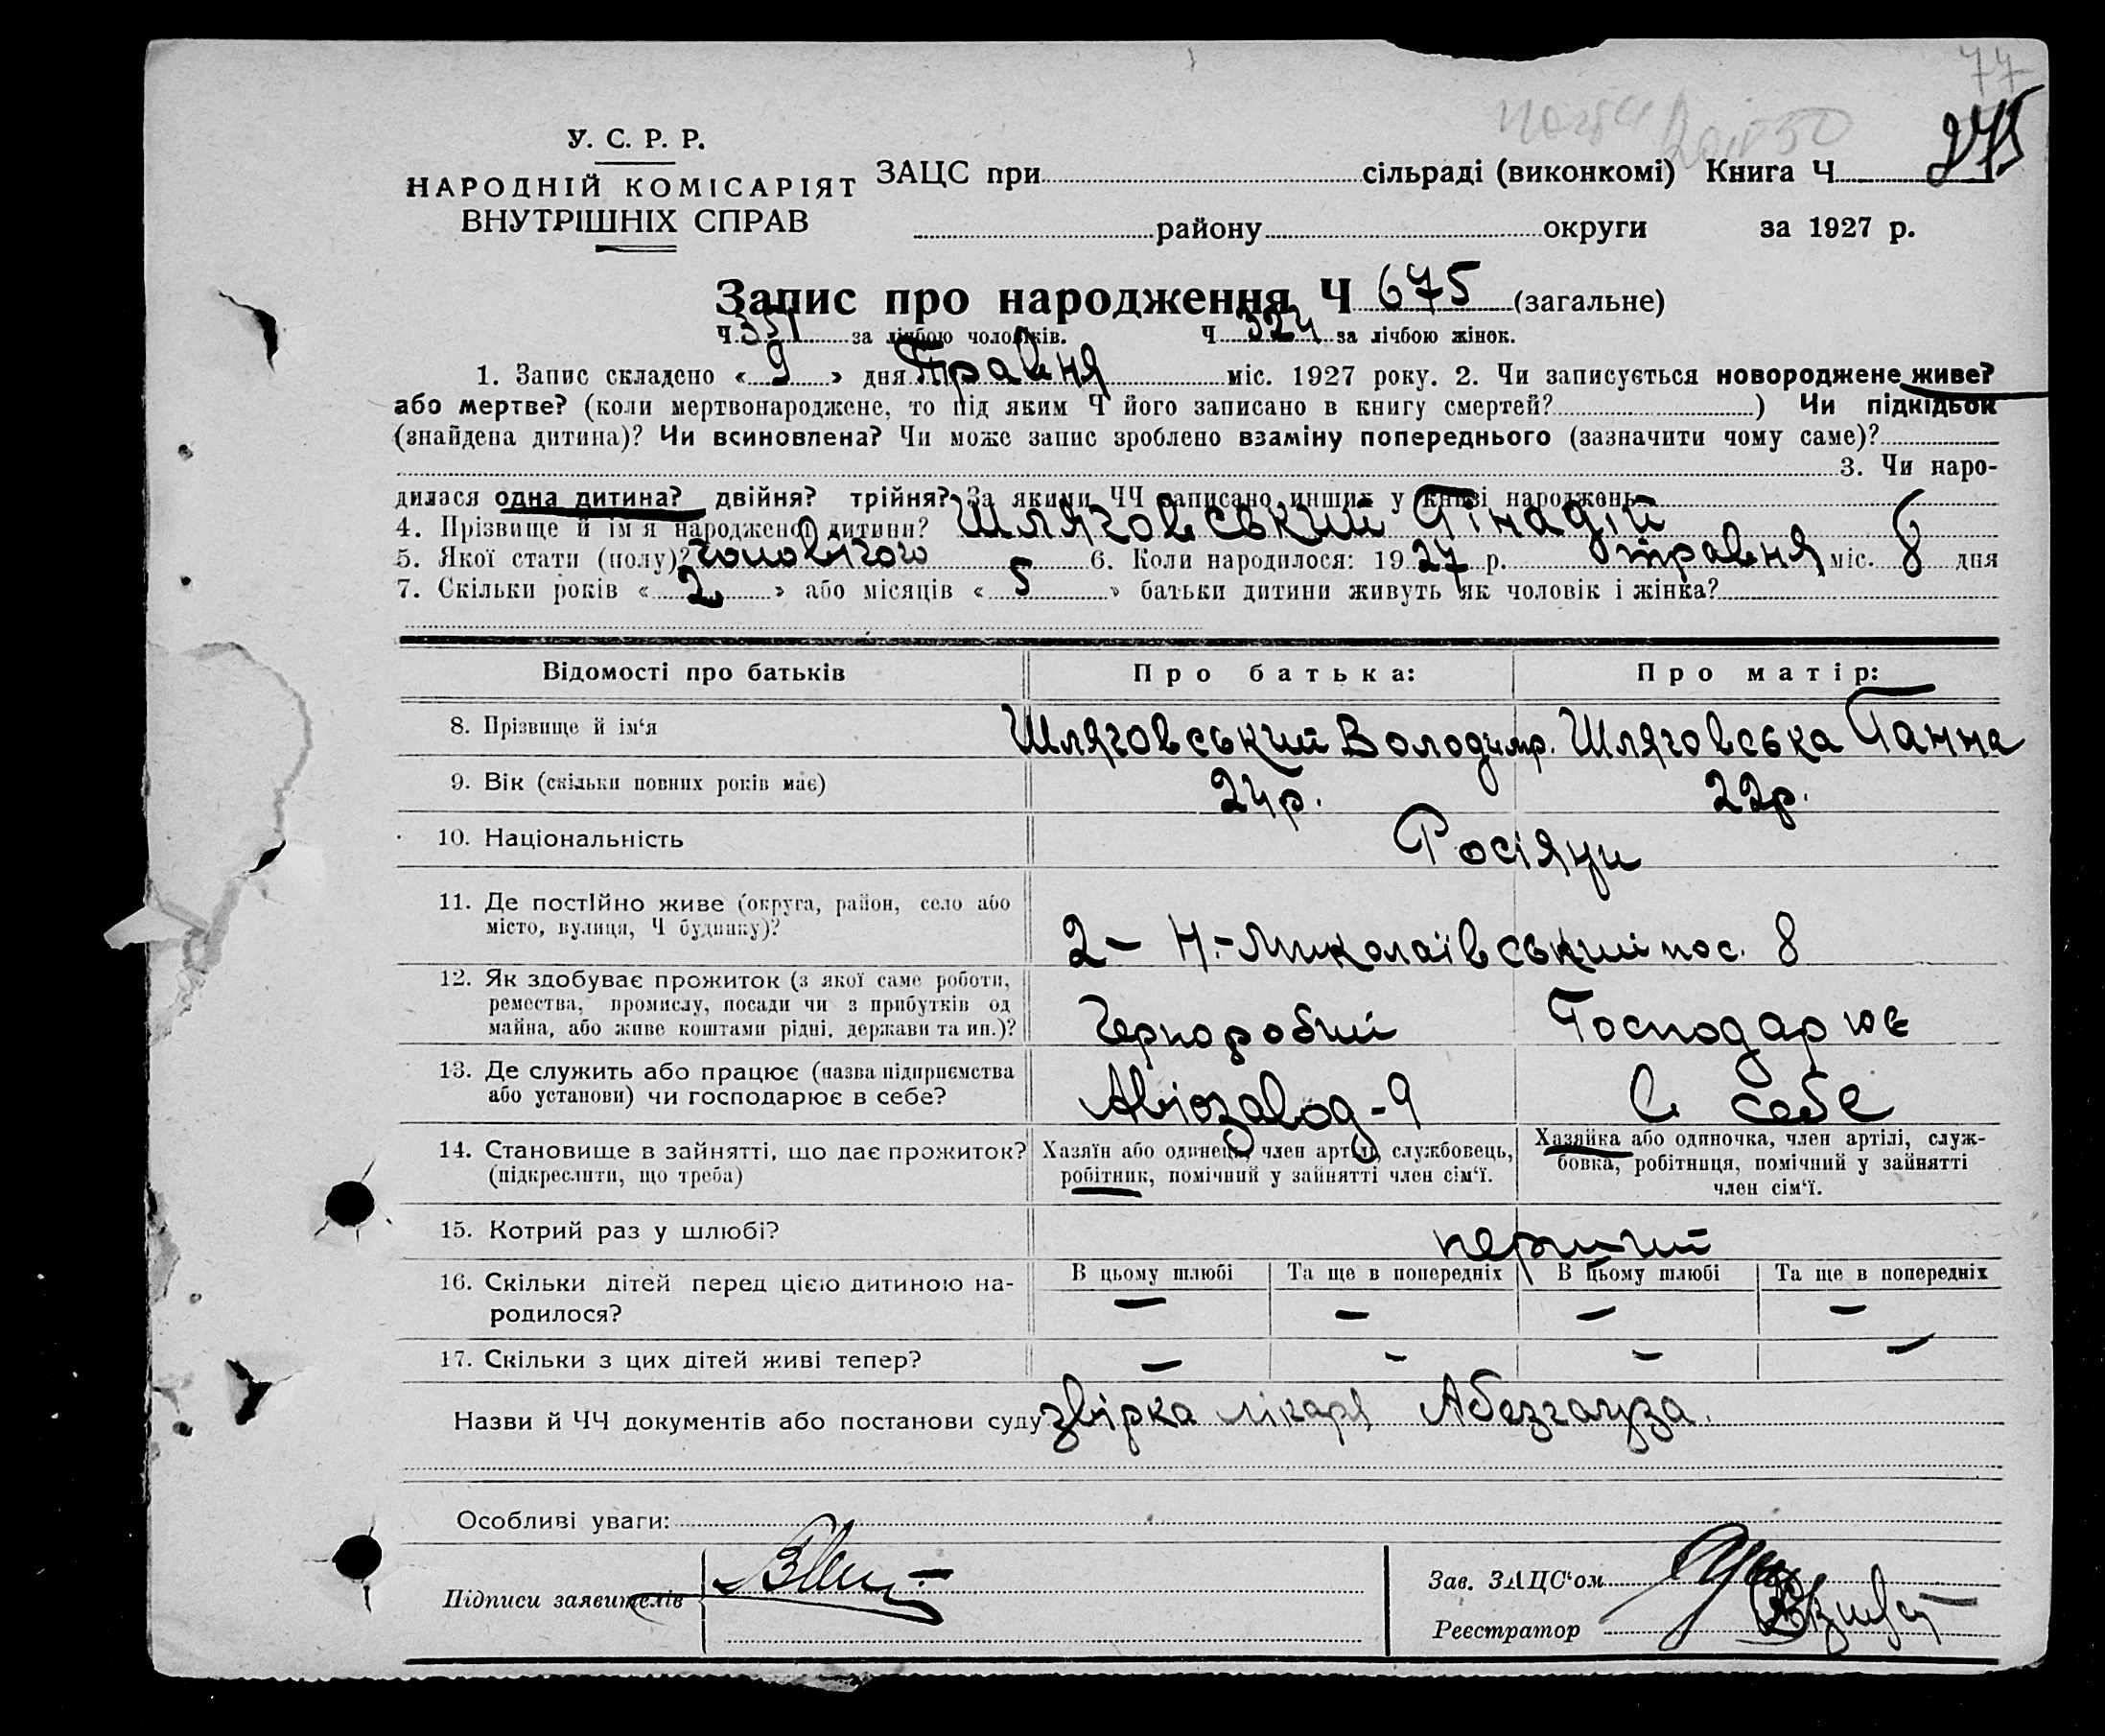 77
У. С. Р. Р.
НАРОДНІЙ КОМІСАРІЯТ
ВНУТРІШНІХ СПРАВ
ЗАЦС при сільраді (виконкомі) Книга Ч 275
району округи за 1927 р.
Запис про народження Ч 675 (загальне)
Ч 351 за лічбою чоловіків. Ч 324 за лічбою жінок.
1. Запис складено « 9 » дня Травня міс. 1927 року. 2. Чи записується новороджене живе?
або мертве? (коли мертвонароджене, то під яким Ч його записано в книгу смертей? ) Чи підкідьок
(знайдена дитина)? Чи всиновлена? Чи може запис зроблено взаміну попереднього (зазначити чому саме)?
3. Чи наро-
дилася одна дитина? двійня? трійня? За якими ЧЧ записано инших у книзі народжень
4. Прізвище й ім'я народженої дитини? Шляговський Гінадій
5. Якої стати (полу)? чоловічого 6. Коли народилося: 1927 р. травня міс. 8 дня
7. Скільки років « 2 » або місяців « 5 » батьки дитини живуть як чоловік і жінка?
Відомості про батьків Про батька: Про матір:
8. Прізвище й ім'я Шляговський Володимр. Шляговська Ганна
9. Вік (скільки повних років має) 24р. 22р.
10. Національність Росіяни
11. Де постійно живе (округа, район, село або
місто, вулиця, Ч будинку)? 2 – Н.-Миколаівський пос. 8
12. Як здобуває прожиток (з якої саме роботи,
ремества, промислу, посади чи з прибутків од
майна, або живе коштами рідні, держави та ин.)? Черноробий Господарює
13. Де служить або працює (назва підприємства
або установи) чи господарює в себе? Авіозавод-9 В себе
14. Становище в зайнятті, що дає прожиток?
(підкреслити, що треба)
Хазяїн або одинець, член артілі, службовець,
робітник, помічний у зайнятті член сім'ї.
Хазяйка або одиночка, член артілі, служ-
бовка, робітниця, помічний у зайнятті
член сім'ї.
15. Котрий раз у шлюбі? перший
16. Скільки дітей перед цією дитиною на-
родилося?
В цьому шлюбі Та ще в попередніх В цьому шлюбі Та ще в попередніх
– – – –
17. Скільки з цих дітей живі тепер? – – – –
Назви й ЧЧ документів або постанови суду звірка лікаря Абезгауза.
Особливі уваги:
Підписи заявителів
Зав. ЗАЦС'ом
Реєстратор